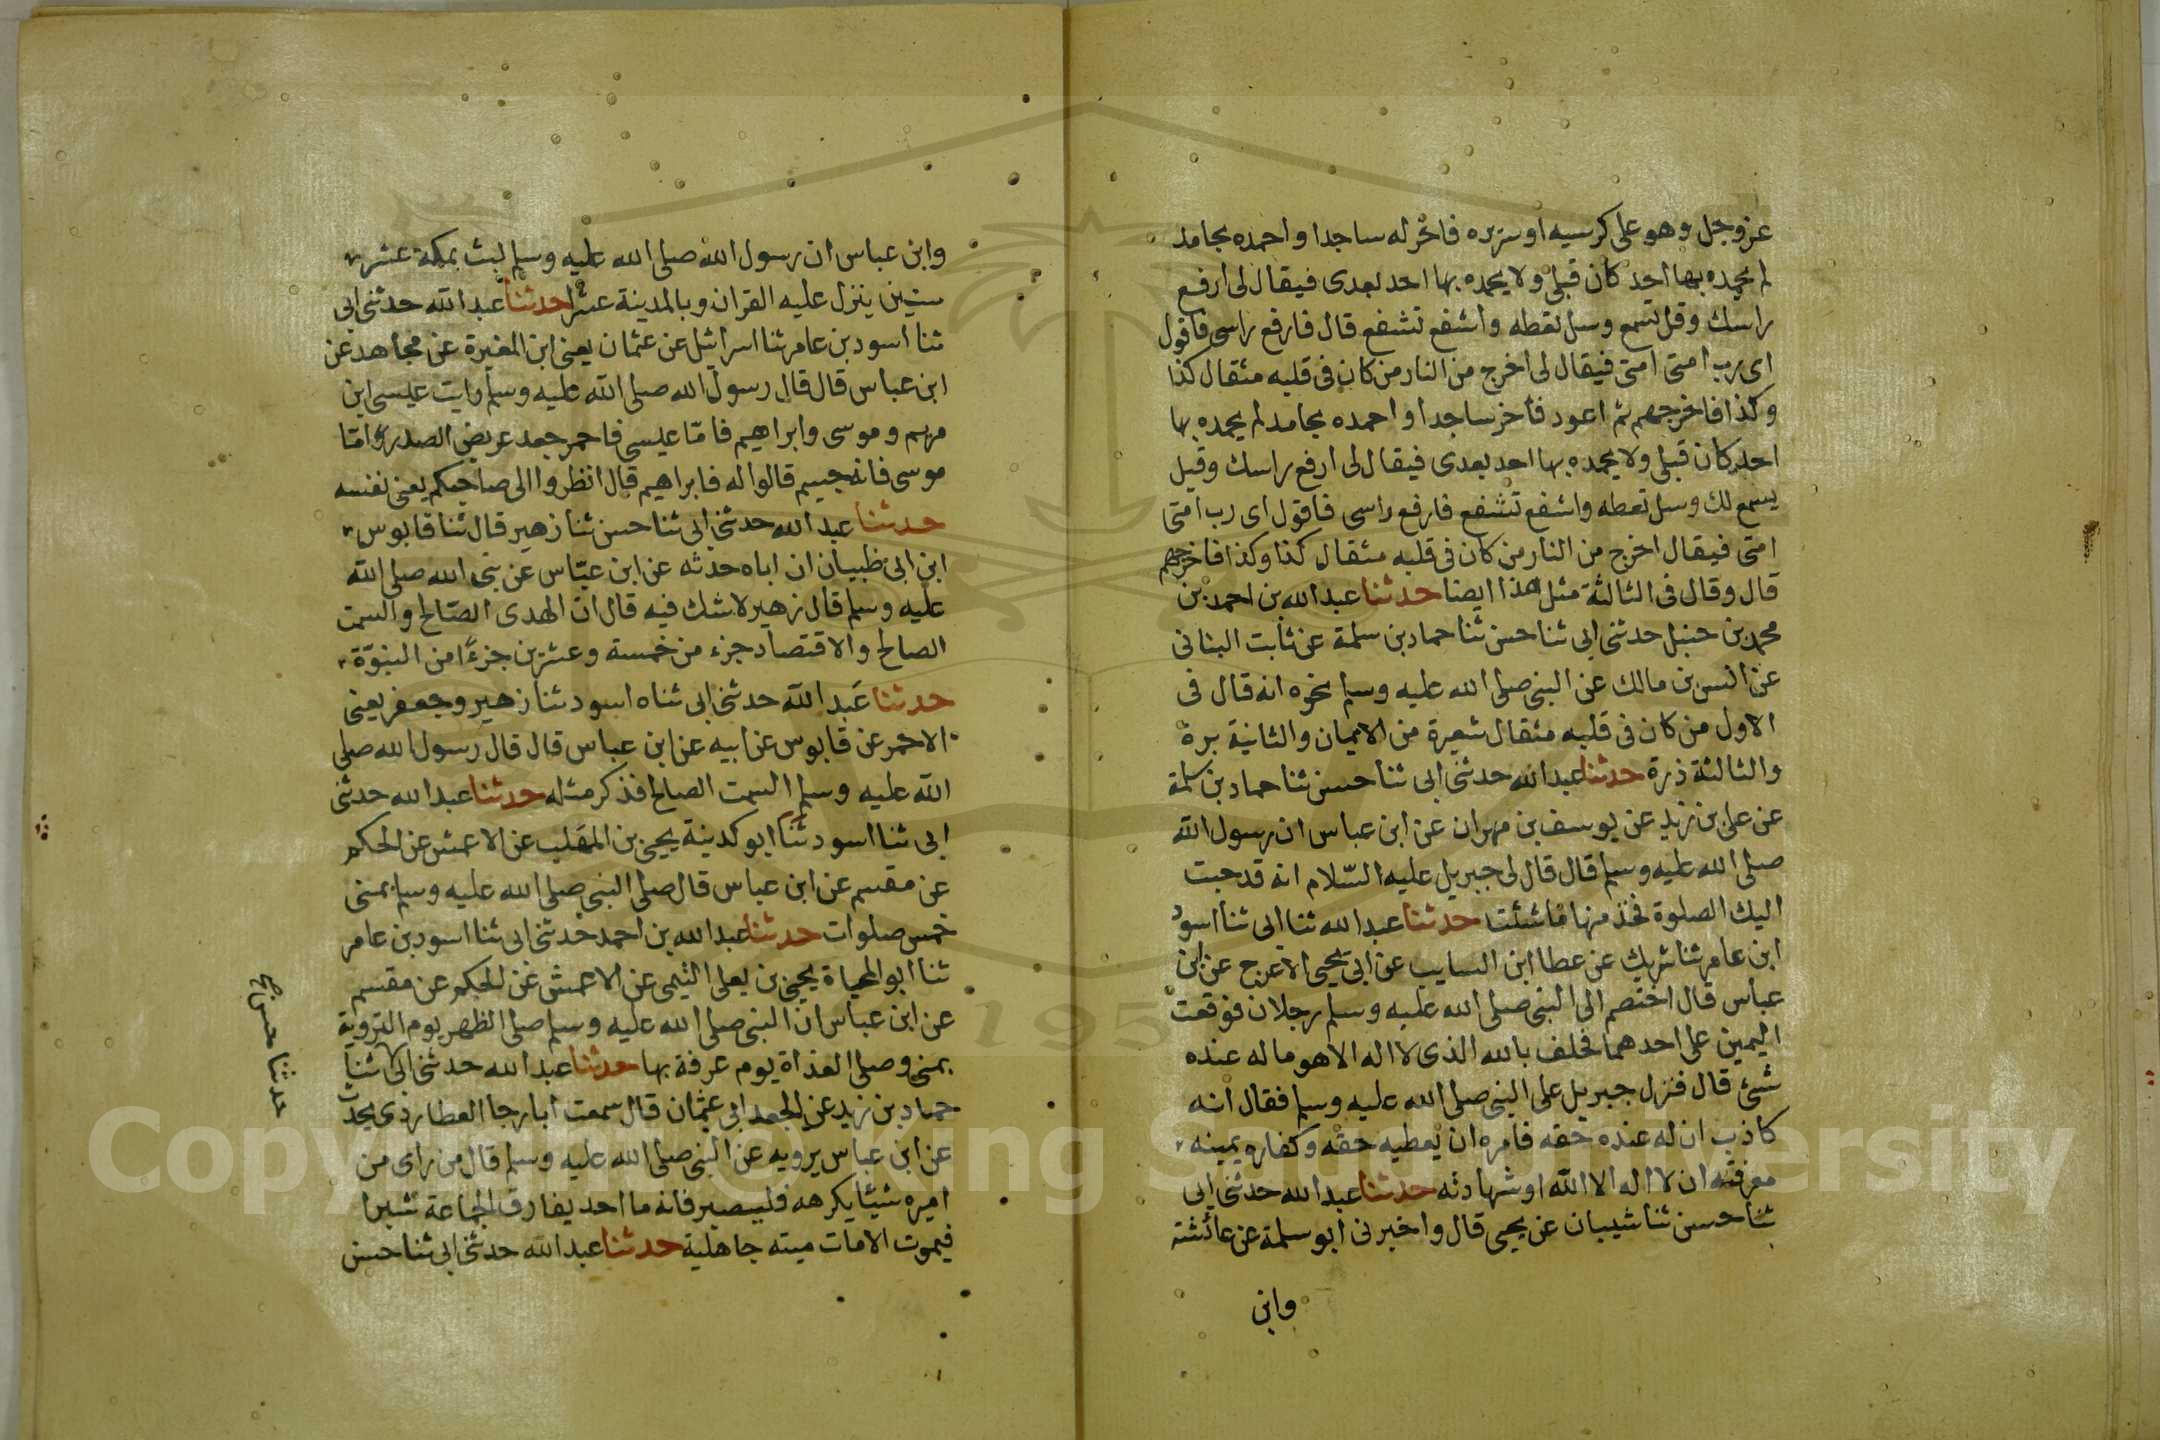 عز وجل وهو على كرسيه او سريره فاخر له ساجدا واحمده بمحامد
لم يحمده بها احد كان قبلي ولا يحمده بها احد بعدى فيقال لى ارفع
راسك وقل تسمع وسل تعطه واشفع تشفع قال فارفع راسى فاقول
اى رب امتى امتى فيقال لى اخرج من النار من كان فى قلبه مثقال كذا
وكذا فاخرجهم ثم اعود فأخر ساجدا واحمده بمحامد لم يحمده بها
احد كان قبلى ولا يحمده بها احد بعدى فيقال لى ارفع راسك وقيل
يسمع لك وسل تعطه واشفع تشفع فارفع راسى فاقول اى رب امتى
امتى فيقال اخرج من النار من كان فى قلبه مثقال كذا وكذا فاخرجهم
قال وقال فى الثالثة مثل هذا ايضا حدثنا عبد الله بن احمد بن
محمد بن حنبل حدثنى ابى ثنا حسن ثنا حماد بن سلمة عن ثابت البنانى
عن انس بن مالك عن النبى صلى الله عليه وسلم نحوه انه قال فى
الاول من كان فى قلبه مثقال شعيرة من الايمان والثانية برة
والثالثة ذرة حدثنا عبد الله حدثنى ابى ثنا حسن ثنا حماد بن سلمة
عن على بن زيد عن يوسف بن مهران عن ابن عباس ان رسول الله
صلى الله عليه وسلم قال قال لى جبريل عليه السّلام انه قد حبت
اليك الصلوة فخذ منها ما شئت حدثنا عبد الله ثنا ابى ثنا اسود
ابن عامر ثنا شريك عن عطا ابن السايب عن ابى يحيى الاعرج عن ابن
عباس قال اختصم الى النبى صلى الله عليه وسلم رجلان فوقعت
اليمين على احدهما فحلف بالله الذى لا اله الا هو ما له عنده
شئ قال فنزل جبريل على النبى صلى الله عليه وسلم فقال انه
كاذب ان له عنده حقه فامره ان يعطيه حقه وكفاره يمينه
معرفته ان لا اله الا الله او شهادته حدثنا عبد الله حدثنى ابى
ثنا حسن ثنا شيبان عن يحيى قال واخبرنى ابو سلمة عن عائشة
وابن
وابن عباس ان رسول الله صلى الله عليه وسلم لبث بمكة عشر
سنين ينزل عليه القران وبالمدينة عشرا حدثنا عبد الله حدثنى ابى
ثنا اسود بن عامر ثنا اسرائيل عن عثمان يعنى ابن المغيرة عن مجاهد عن
ابن عباس قال قال رسول الله صلى الله عليه وسلم رايت عيسى ابن
مريم وموسى وابراهيم فامّا عيسى فاحمر جعد عريض الصدر وامّا
موسى فانه جسيم قالوا له فابراهيم قال انظروا الى صاحبكم يعنى نفسه
حدثنا عبد الله حدثنى ابى ثنا حسن ثنا زهير قال ثنا قابوس
ابن ابى ظبيان ان اباه حدثه عن ابن عبّاس عن نبى الله صلى الله
عليه وسلم قال زهير لا شك فيه قال ان الهدى الصّالح والسمت
الصالح والاقتصاد جزء من خمسة وعشرين جزءًا من النبوّة
حدثنا عبد الله حدثنى ابى ثناه اسود ثنا زهير وجعفر يعنى
الاحمر عن قابوس عن ابيه عن ابن عباس قال قال رسول الله صلى
الله عليه وسلم السمت الصالح فذكر مثله حدثنا عبد الله حدثنى
ابى ثنا اسود ثنا ابو كدينة يحيى بن المهلب عن الاعمش عن الحكم
عن مقسم عن ابن عباس قال صلى النبى صلى الله عليه وسلم بمنى
خمس صلوات حدثنا عبد الله بن احمد حدثنى ابى ثنا اسود بن عامر
ثنا ابو المحياة يحيى بن يعلى التيمى عن الاعمش عن الحكم عن مقسم
عن ابن عباس ان النبى صلى الله عليه وسلم صلى الظهر يوم التروية
بمنى وصلى الغداة يوم عرفة بها حدثنا عبد الله حدثنى ابى ثنا
حماد بن زيد عن الجعد ابى عثمان قال سمعت ابا رجا العطاردى يحدث
عن ابن عباس يرويه عن النبى صلى الله عليه وسلم قال من راى من
اميره شيئا يكرهه فليصبر فانه ما احد يفارق الجماعة شبرا
فيموت الا مات ميته جاهلية حدثنا عبد الله حدثنى ابى ثنا حسن
حدثنا حسن صح
Copyright © King Saud University